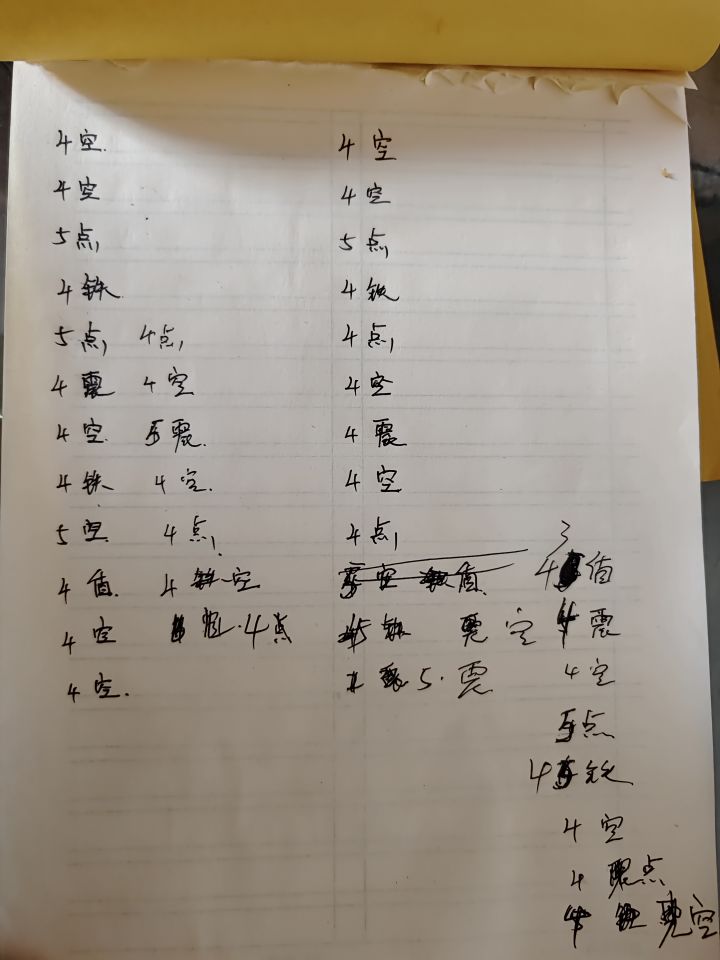 4空. 4空
4空 4空
5点 5点
4铁. 4铁
5点 4点 4点
4震 4空 4空
4空. 5震. 4震
4铁 4空. 4空
5空. 4点 4点 3
4值. 4 空 空 值. 4 值
4空 4点 5 空 震
4空. 5.震 4空
点
4 铁
4空
4 点
空